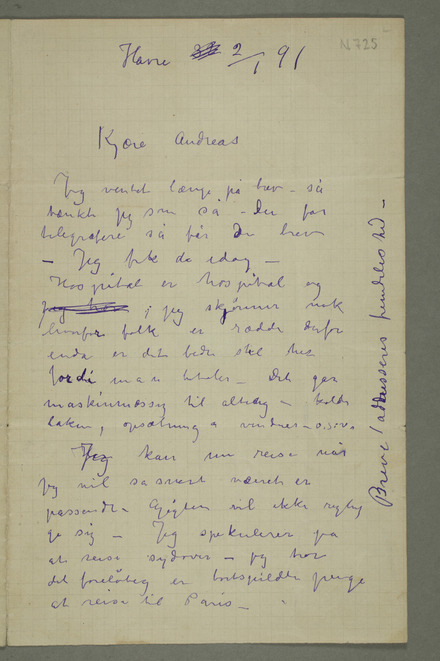 N 725
Havre 2/1 91
Kjære Andreas
Jeg ventet længe på brev – så
tænkte jeg som så – Du får
telegrafere så får Du brev
– Jeg fik da idag –
Hospital er hospital og
jeg tror ; jeg skjønner nok
hvorfor folk er rædde derfor
enda er det bedre stel her
fordi man betaler – Det går
maskinmæssig til alting – kolde
laken, opsætning a vinduer o.s.v.
Jeg kan nu reise når
jeg vil så snart været er
passende. Gigten vil ikke rigtig
gi sig – Jeg spekulerer på
at reise sydover – jeg tror
det foreløbig er bortspildte penge
at reise til Paris –
Breve adresseres fremdeles hid –